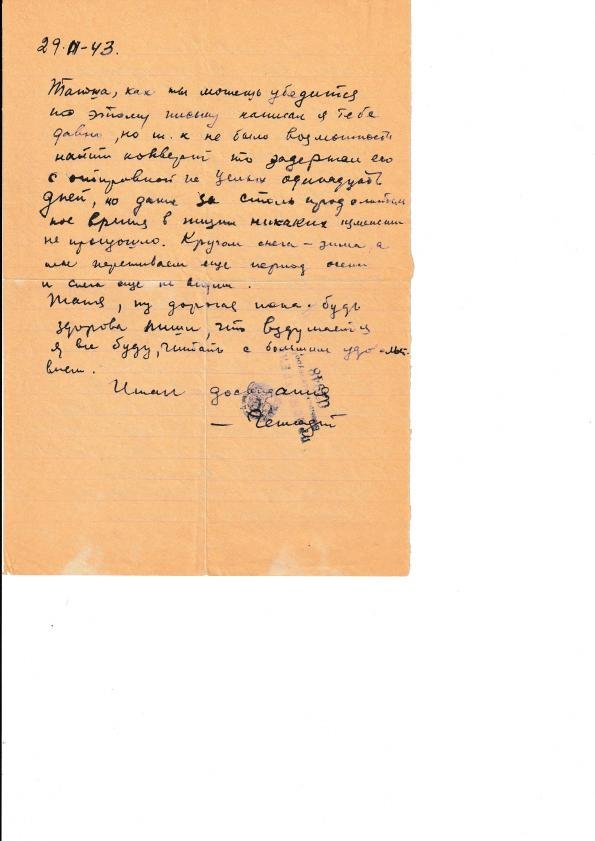 29.XI-43.
Таюша, как ты можешь убедится
по этому письму написал я тебе
давно, но т. к не было возможности
найти конверт то задержал его
с отправкой не целых одинадцать
дней, но даже за столь продолжитель
ное время в жизни никаких изменений
не произошло. Кругом снега – зима, а
мы переживаем еще период осени
и снега еще не видим.
Таня, ну дорогая пока. будь
здорова пиши, что вздумается
я все буду, читать с большим удоволь-
вием.
Итак досвидания
— Геннадий